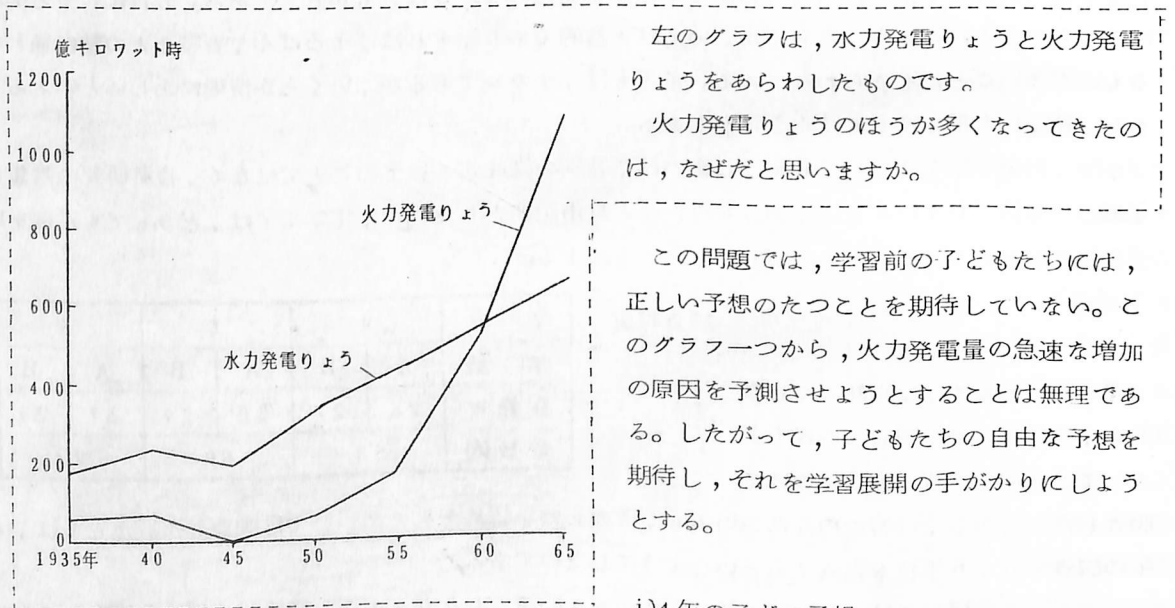 億キロワット時
1200
1000
800
600
400
200
0
火力発電りょう
水力発電りょう
1935年 40 45 50 55 60 65
左のグラフは,水力発電りょうと火力発電
りょうをあらわしたものです。
火力発電りょうのほうが多くなってきたの
は,なぜだと思いますか。
この問題では,学習前の子どもたちには,
正しい予想のたつことを期待していない。こ
のグラフ一つから,火力発電量の急速な増加
の原因を予測させようとすることは無理であ
る。したがって,子どもたちの自由な予想を
期待し,それを学習展開の手がかりにしよう
とする。